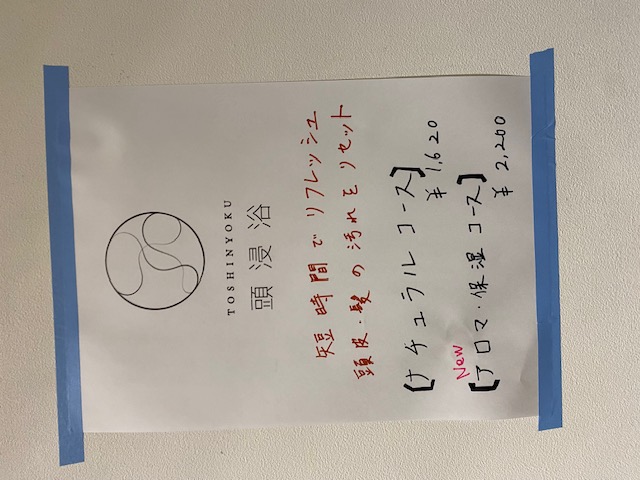 TOSHINYOKU
頭浸浴
短時間でリフレッシュ
頭皮・髪の汚れをリセット
[ナチュラルコース]
¥1,620
New
[アロマ・保湿コース]
¥2,200